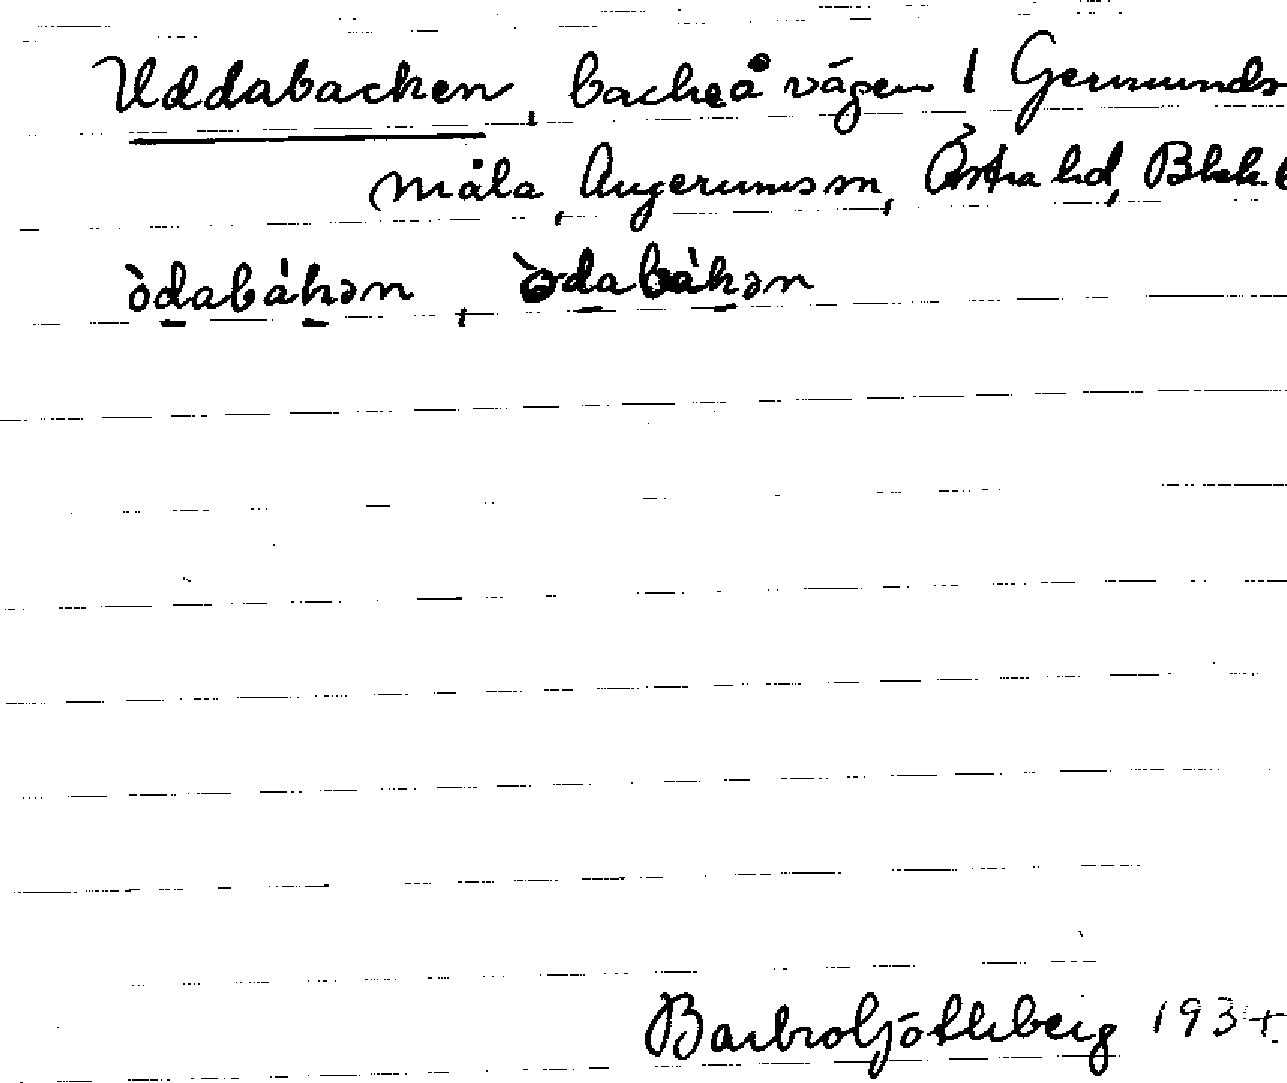 Uddabacken, backe å vägen i Germunds
måla, Augerums sn, Östra hd, Blek. l
òdabákən, òdabàkən
Barbro Götlberg 1934